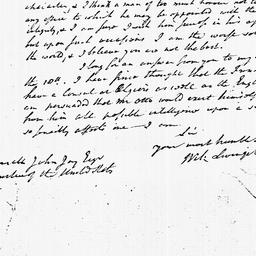 character, & I think a man of too much honor not to
any office to which he may be appointed with the
integrity, & I am sure I wish him success in his ap
but upon such occasions I am the worst so
the world, & I believe you are not the best.
I long for an answer from you to my
the 10th. I have since thought that the Fren
have a Consul at Algiers as well as the Engli
am persuaded that Mr Otto would exert himself
from him all possible intelligence upon a s
so sensibly affects me — I am
Sir
your most humble
Wm. Livingst
John Jay Esqr
of the United States